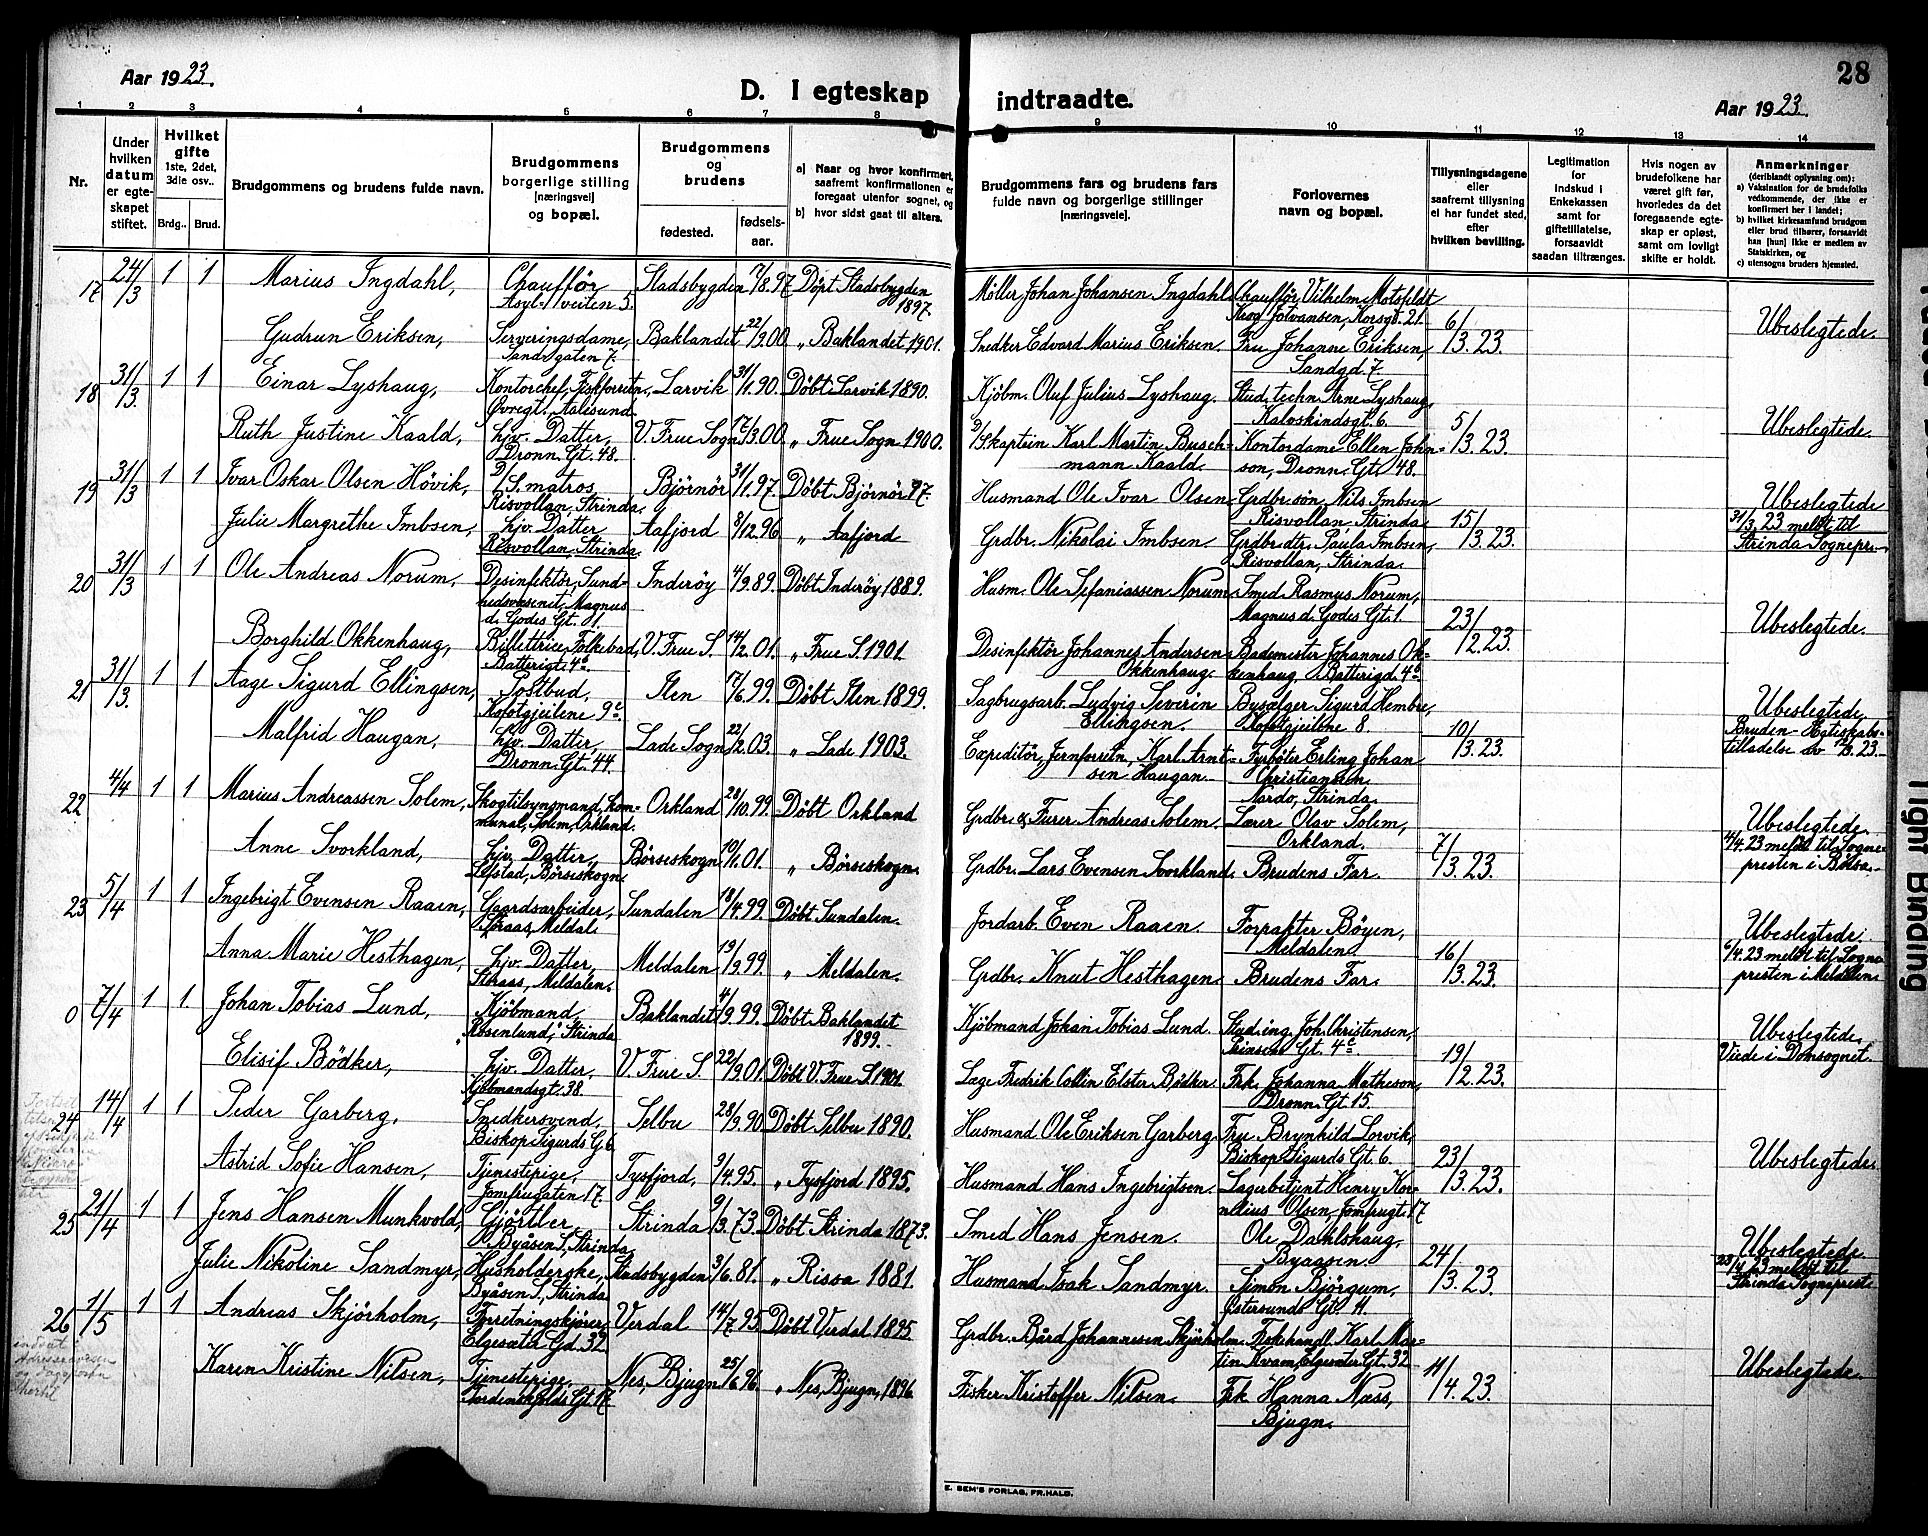 Aar 1923.
D. I egteskap indtraadte.
28
Aar 1923.
1 2 3 4 5 6 7 8 9 10 11 12 13 14
Nr.
Under hvilken datum er egteskapet stiftet.
Hvilket gifte 1ste, 2det, 3die osv..
Brdg.. Brud.
Brudgommens og brudens fulde navn.
Brudgommens borgerlige stilling [næringsvei] og bopæl.
Brudgommens og brudens
fødested. fødselsaar.
a) Naar og hvor konfirmert, saafremt konfirmationen er foregaat utenfor sognet, og
b) hvor sidst gaat til alters.
Brudgommens fars og brudens fars fulde navn og borgerlige stillinger [næringsvei].
Forlovernes navn og bopæl.
Tillysningsdagene eller saafremt tillysning ei har fundet sted, efter hvilken bevilling.
Legitimation for indskud i Enkekassen samt for giftetillatelse, forsaavidt saadan tiltrænges.
Hvis nogen av brudefolkene har været gift før, hvorledes da det foregaaende egteskap er opløst, samt om lovligt skifte er holdt.
Anmerkninger (deriblandt oplysning om):
a) Vaksination for de brudefolks vedkommende, der ikke er konfirmert her i landet;
b) hvilket kirkesamfund brudgom eller brud tilhører, forsaavidt han [hun] ikke er medlem av Statskirken, og
c) utensogns bruders hjemsted.
17 24/3 1 1 Marius Ingdahl, Chaufför, Asyl-veiten 5. Stadsbygden 17/8.97. Döpt Stadsbygden 1897. Möller Johan Johansen Ingdahl. Chaufför Vilhelm Motzfeldt Krog Jotvansen, Korsgt. 21. 6/3.23. Ubeslegtede.
Gudrun Eriksen, Serveringsdame, Sandsgaten 7. Baklandet 22/9.00. „ Baklandet 1901. Snedker Edvard Marius Eriksen. Fru Johanne Eriksen, Sandgd. 7.
18 31/3. 1 1 Einar Lyshaug, Kontorchef, Fiskforretn., Øvregt., Aalesund. Larvik 31/1.90. Döbt Larvik 1890. Kjöbm. Oluf Julius Lyshaug. Stud. techn. Arne Lyshaug, Kalvskindsgt. 6. 5/3.23. Ubeslegtede.
Ruth Justine Kaald, hjv. Datter, Dronn. Gt. 48. V. Frue Sogn 17/3.00. „ Frue Sogn 1900. D/Skaptein Karl Martin Buschmann Kaald. Kontordame Ellen Johnson, Dronn. Gt. 48.
19 31/3 1 1 Ivar Oskar Olsen Hövik, D/S. matros, Risvollan, Strinda, Björnör 31/1.97. Döbt Björnör 97. Husmand Ole Ivar Olsen. Grdbr. sön, Nils Imbsen Risvollan, Strinda 15/3.23. Ubeslegtede 31/3.23 meldt til Strinda Sognepr.
Julie Margrethe Imbsen, hjv. Datter, Risvollan, Strinda. Aafjord 8/12.96 „ Aafjord Grdbr. Nikolai Imbsen. Grdbr. dtr. Paula Imbsen, Risvollan, Strinda.
20 31/3 1 1 Ole Andreas Norum, Desinfektör, Sundhedsvæsenet, Magnus d. Godes Gt. 1. Inderöy 4/9.89. Döbt Inderöy 1889. Husm. Ole Stefaniassen Norum Smed Rasmus Norum, Magnus d. Godes Gt. 1. 23/2.23. Ubeslegtede.
Borghild Okkenhaug, Billettrice, Folkebad, Batterigt. 4a. V. Frue S. 14/2.01. „ Frue S. 1901. Desinfektör Johannes Andersen Okkenhaug. Bademester Johannes Okkenhaug, Batterigd. 4a.
21 31/3. 1 1 Aage Sigurd Ellingsen, Postbud, Kofotgjeilene 9c. Ilen 17/6.99. Döbt Ilen 1899. Sagbrugsarb. Ludvig Severin Ellingsen. Byselger Sigurd Hembre, Kofotgjeilene 8. 10/3.23. Ubeslegtede Bruden - Egteskabstilladelse
Malfrid Haugan, hjv. Datter, Dronn. Gt. 44. Lade Sogn 22/2.03. „ Lade 1903. Expeditör, Jernforretn., Karl Arntsen Haugan. Fyrböter Erling Johan Christiansen Nardo, Strinda.
22 4/4 1 1 Marius Andreassen Solem, Skogtilsynsmand, kommunal, Solem, Orkland. Orkland 28/10.99. Döbt Orkland Grdbr. & Furer Andreas Solem. Lærer Olav Solem, Orkland. 7/3.23. Ubeslegtede. 4/4.23 meldt til Sognepresten i Börsa.
Anne Svorkland, hjv. Datter, Lefstad, Börseskogn. Börseskogn 10/1.01. „ Börseskogn. Grdbr. Lars Evensen Svorkland. Brudens Far.
23 5/4 1 1 Ingebrigt Evensen Raaen, Gaardsarbeider, Meldal. Sundalen 18/4.99. Döbt Sundalen. Jordarb. Even Raaen. Forpakter Böyen, Meldalen. 16/3.23. Ubeslegtede. 6/4.23 meldt til Sognepresten i Meldalen
Anna Marie Hesthagen, hjv. Datter, Meldalen. Meldalen 19/9.99. „ Meldalen. Grdbr. Knut Hesthagen. Brudens Far.
0 7/4 1 1. Johan Tobias Lund, Kjöbmand, „Rosenlund," Strinda Baklandet 4/9.99. Döbt Baklandet 1899. Kjöbmand Johan Tobias Lund. Stud. ing. Joh. Christensen, Prinsens Gt. 4c 19/2.23. Ubeslegtede. Viede i Domsognet.
Elisif Bödker, hjv. Datter, Kjöbmandsgt. 38. V. Frue S. 22/9.01. Döbt V. Frue S. 1901. Læge Fredrik Collin Elster Bödker. Frk. Johanna Matheson, Dronn. Gt. 15.
24 14/4 1 1 Peder Garberg, Snedkersvend, Biskop Sigurds G. 6. Selbu 28/9.90. Döbt Selbu 1890. Husmand Ole Eriksen Garberg. Fru Brynhild Lorvik, Biskop Sigurds Gt. 6. 23/3.23. Ubeslegtede.
Astrid Sofie Hansen, Tjenestepige, Jomfrugaten 17. Tysfjord, 9/4.95. „ Tysfjord 1895. Husmand Hans Ingebrigtsen. Lagerbetjent Henry Kornelius Olsen, Jomfrugt. 17
25 21/4 1 1 Jens Hansen Munkvold, Gjörtler, Byåsen S., Strinda Strinda 9/3.73. Döbt Strinda 1873. Smed Hans Jensen. Ole Dahlshaug, Byaasen. 24/3.23. Ubeslegtede. 23/4.23 meldt til Strinda Sogneprest
Julie Nikoline Sandmyr, Husholderske, Byåsen S., Strinda Stadsbygden 3/6.81. „ Rissa 1881. Husmand Isak Sandmyr. Simon Björgum, Östersunds Gt. 11.
26 1/5 1 1 Andreas Skjörholm, Forretningskjörer, Elgesæter Gd. 32. Verdal 14/7.95. Döbt Verdal 1895 Grdbr. Bård Johannesen Skjörholm. Fiskehandl. Karl Martin Kvam, Elgesæter Gt. 32 11/4.23. Ubeslegtede.
Karen Kristine Nilsen, Tjenestepige, Tordenskjolds Gt. 17. Nes, Bjugn 25/6.96. „ Nes, Bjugn, 1896. Fisker Kristoffer Nilsen. Frk Hanna Næss, Bjugn.
E. SEM'S FORLAG, FR.HALD.
Tight Binding